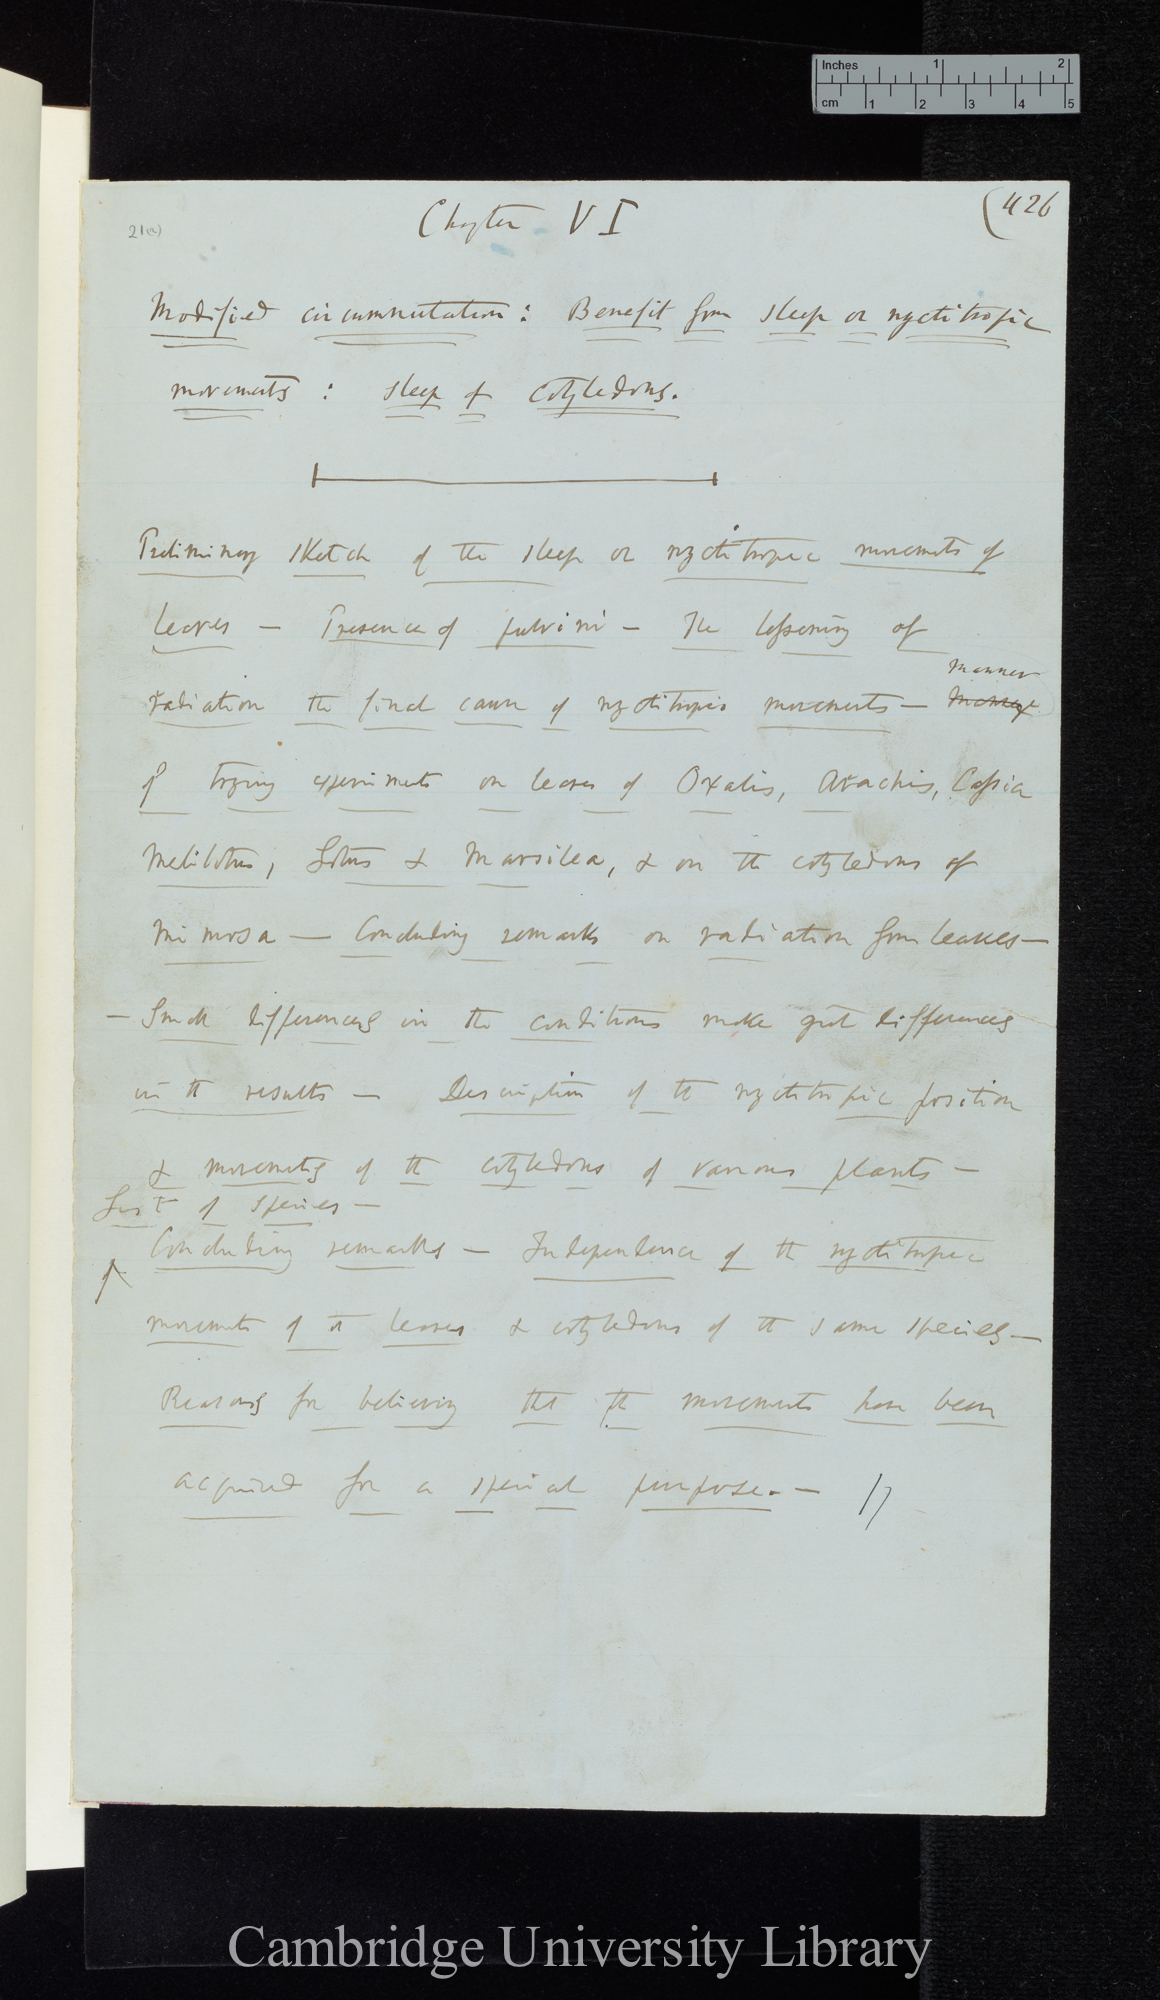 Inches 1 2
cm 1 2 3 4 5
(426
21(a)
Chapter VI
Modified circumnutation: Benefit from sleep or nyctitropic
movements: sleep of cotyledons.
Preliminary sketch of the sleep or nyctitropic movements of
leaves — Presence of pulvini — The lessening of
manner
radiation the final cause of nyctitropic movements —
of trying experiments on leaves of Oxalis, Arachis, Cassia
Melilotus, Lotus & Marsilea, & on the cotyledons of
Mimosa — Concluding remarks on radiation from leaves —
— Small differences in the conditions make great differences
in the results — Description of the nyctitropic position
& movements of the cotyledons of various plants —
List of species —
Concluding remarks — Independence of the nyctitropic
movements of the leaves & cotyledons of the same species —
Reasons for believing that the movements have been
acquired for a special purpose. —
Cambridge University Library